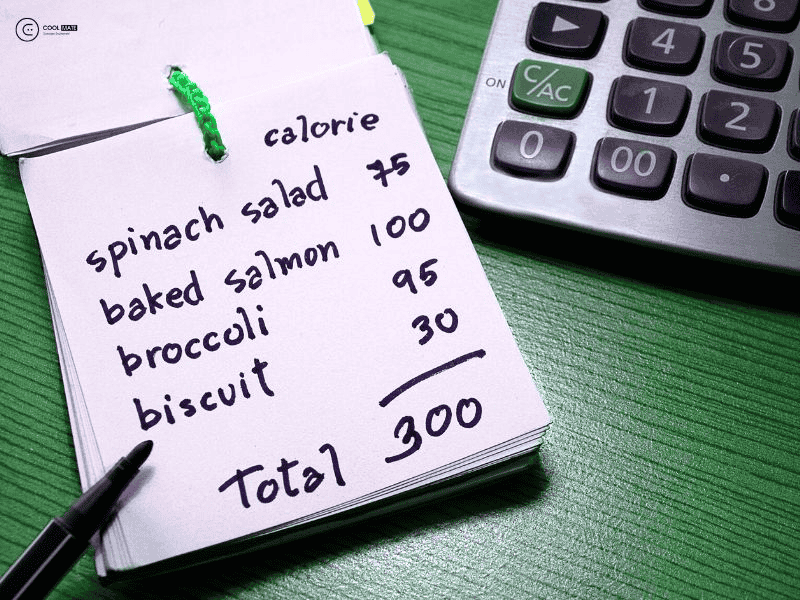 COOLMATE
calorie
spinach salad 75
baked salmon 100
broccoli 95
biscuit 30
Total 300
ON
C/AC
4
5
8
1
2
0
00
.